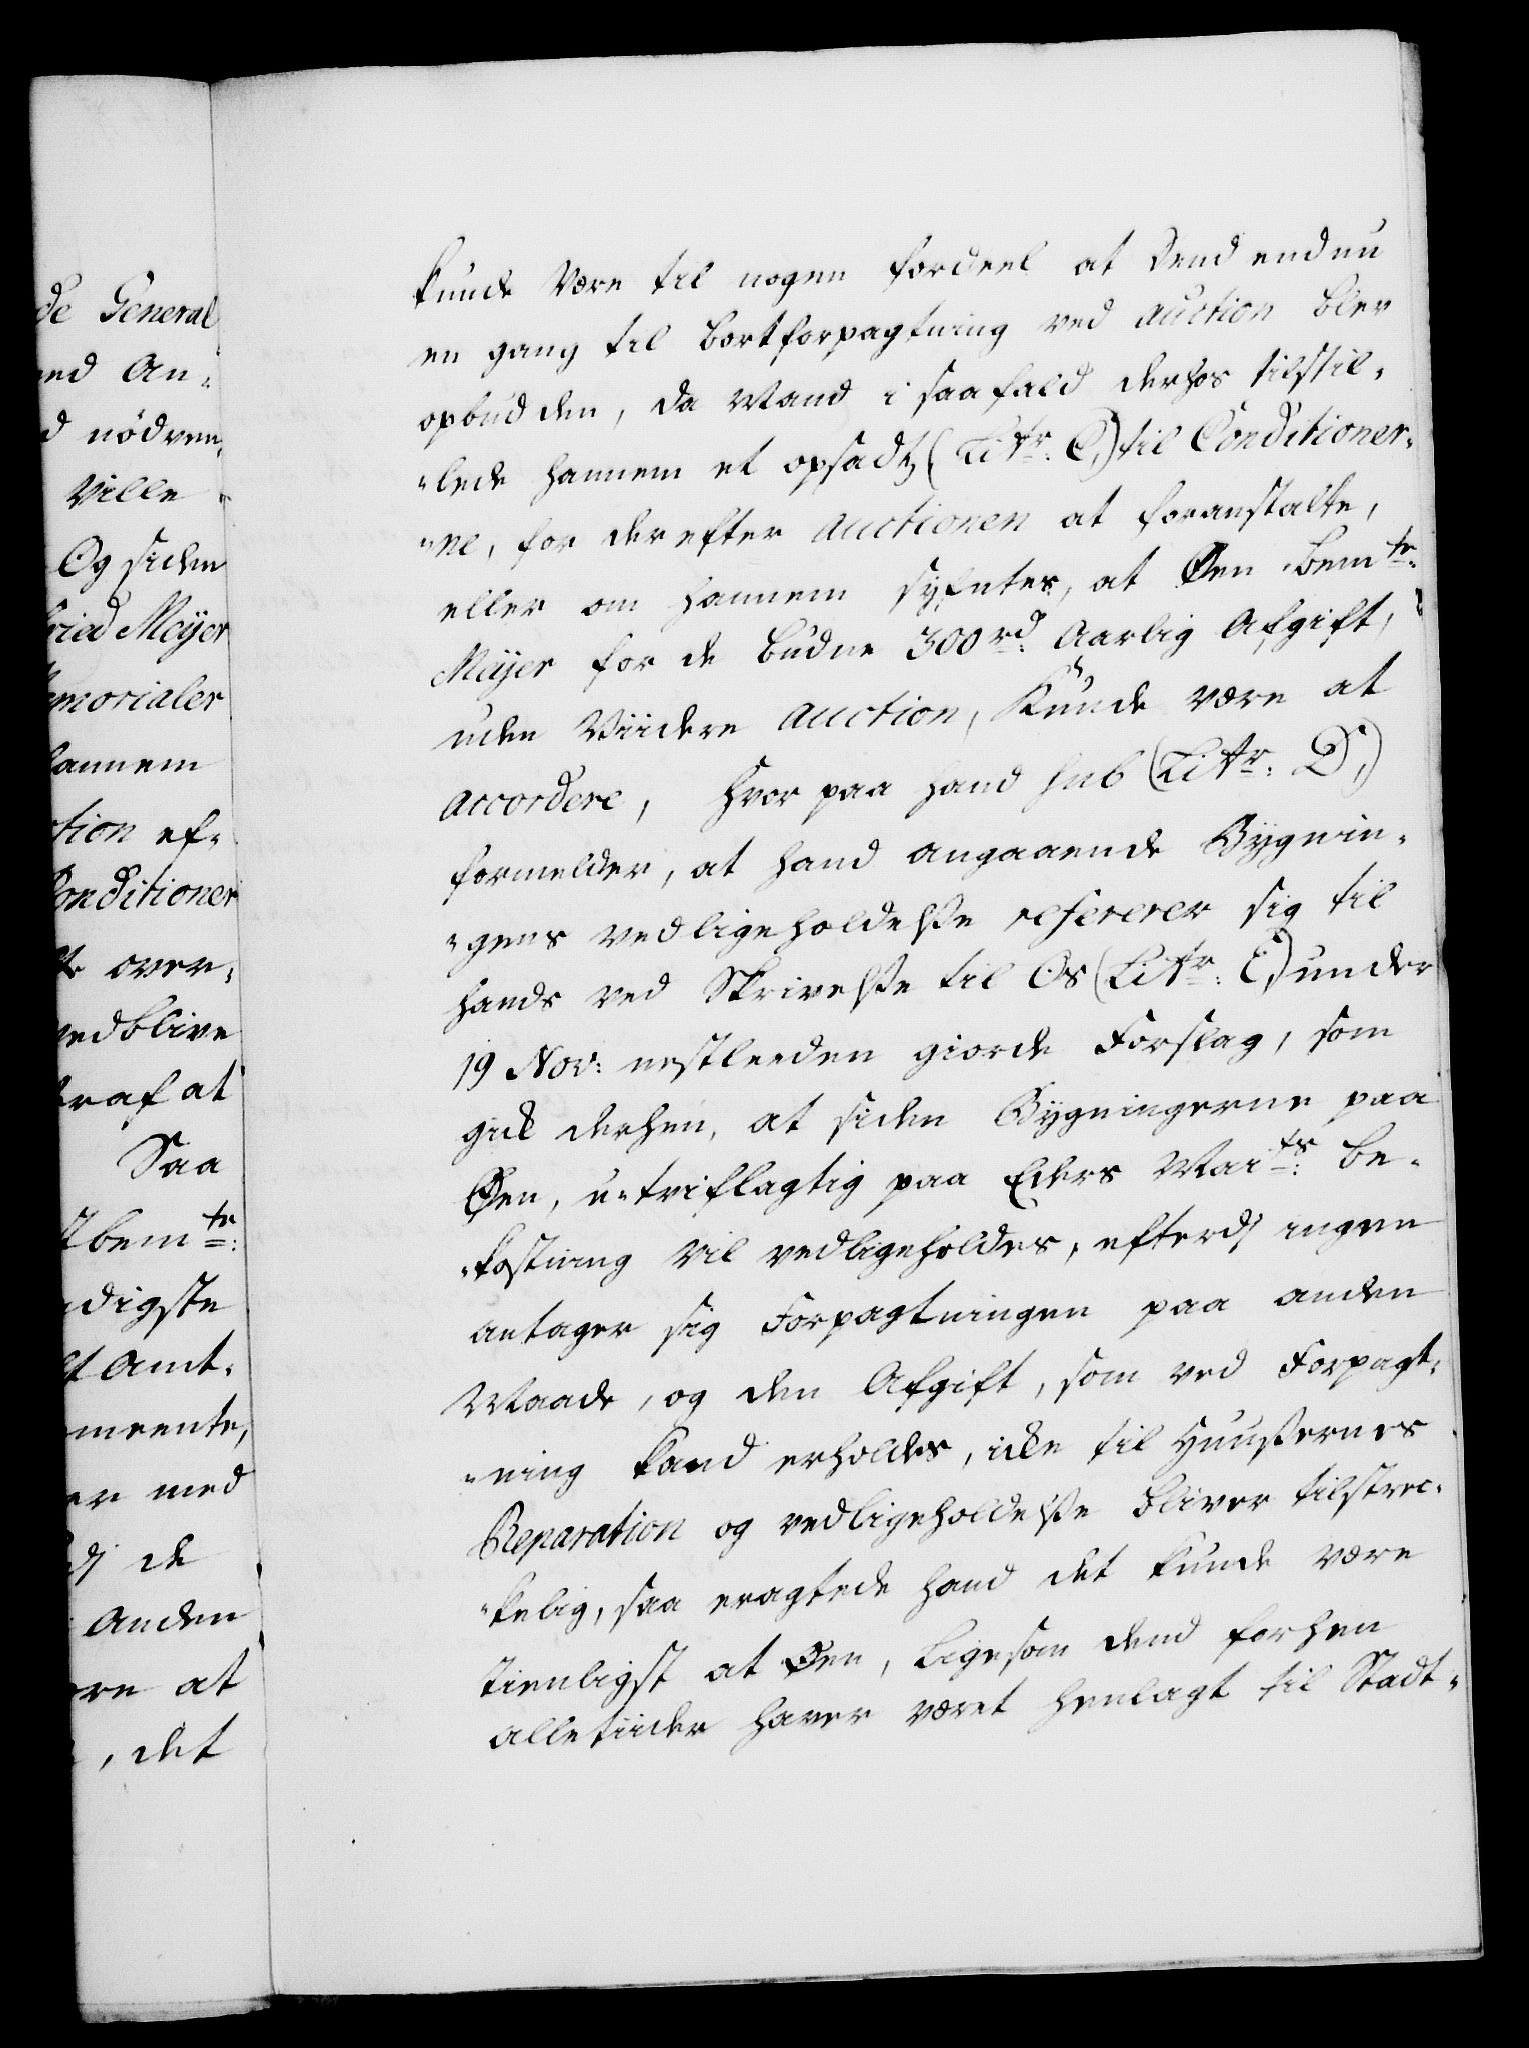 de General
ned An-
d nödven-
Ville
Og siden
fried Meyer
emorialer
hannem
tion ef-
Conditioner
over-
vedblive
traf at
Saa
bemte:
digste
Amt-
meente,
er med
de
Anden
re at
, det
kunde være til nogen fordeel at dend endnu
en gang til bortforpagtning ved auction blev
opbudden, da Mand i saafald derhos tilstil-
-lede hannem et opsadtz (Littr: C,) til Conditioner-
-ne, for derefter Auctionen at foranstalte,
eller om hannem syfntes, at Øen bemte:
Meijer for de budne 300 rd: Aarlig Afgift,
uden Viidere Auction, Kunde være at
accordere, hvor paa hand sub (Littr: D,)
formelder, at hand angaaende Bygnin-
-gens vedligeholdelse refererer sig til
hands ved Skrivelse til Os (Littr: E,) under
19 Nov: nestleeden giorde Forslag, som
gik derhen, at siden Bygningerne paa
Øen, u-trivflagtig paa Eders Maits: be-
-kostning vil vedligeholdes, efterdj ingen
antager sig Forpagtningen paa anden
Maade, og den Afgift, som ved Forpagt-
-ning kand erholdes, icke til Huusernes
Reparation og vedligeholdelse bliver tilstrec-
-kelig, saa eragtede hand det kunde være
tienligst at Øen, ligesom dend forhen
alletiider haver været henlagt til Stadt-